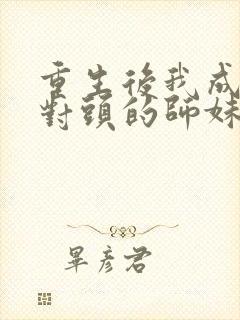 重生後我成
對頭的師妹
畢彥君